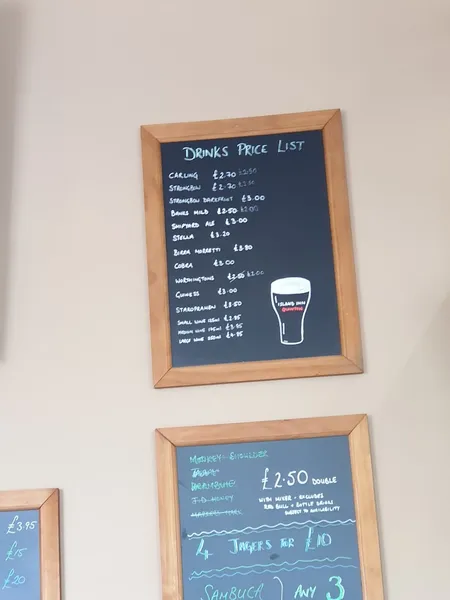 DRINKS PRICE LIST
CARLING £2.70 £2.50
STRONGBOW £2.70 £2.50
STRONGBOW DARKFRUIT £3.00
BANKS MILD £2.50 £2.00
SHIPYARD ALE £3.00
STELLA £3.20
BIRRA MORRETTI £3.80
COBRA £3.00
WORTHINGTONS £2.50 £2.00
GUINESS £3.00
STAROPRAMEN £3.50
SMALL WINE 125ml £2.95
MEDIUM WINE 175ml £3.95
LARGE WINE 250ml £4.95
ISLAND INN
MONKEY SHOULDER
J.D. HONEY
£2.50 DOUBLE
WITH MIXER - EXCLUDES
RED BULL + BOTTLE DRINKS
SUBJECT TO AVAILABILITY
4 JAGERS FOR £10
SAMBUCA ANY 3
£3.95
£15
£20